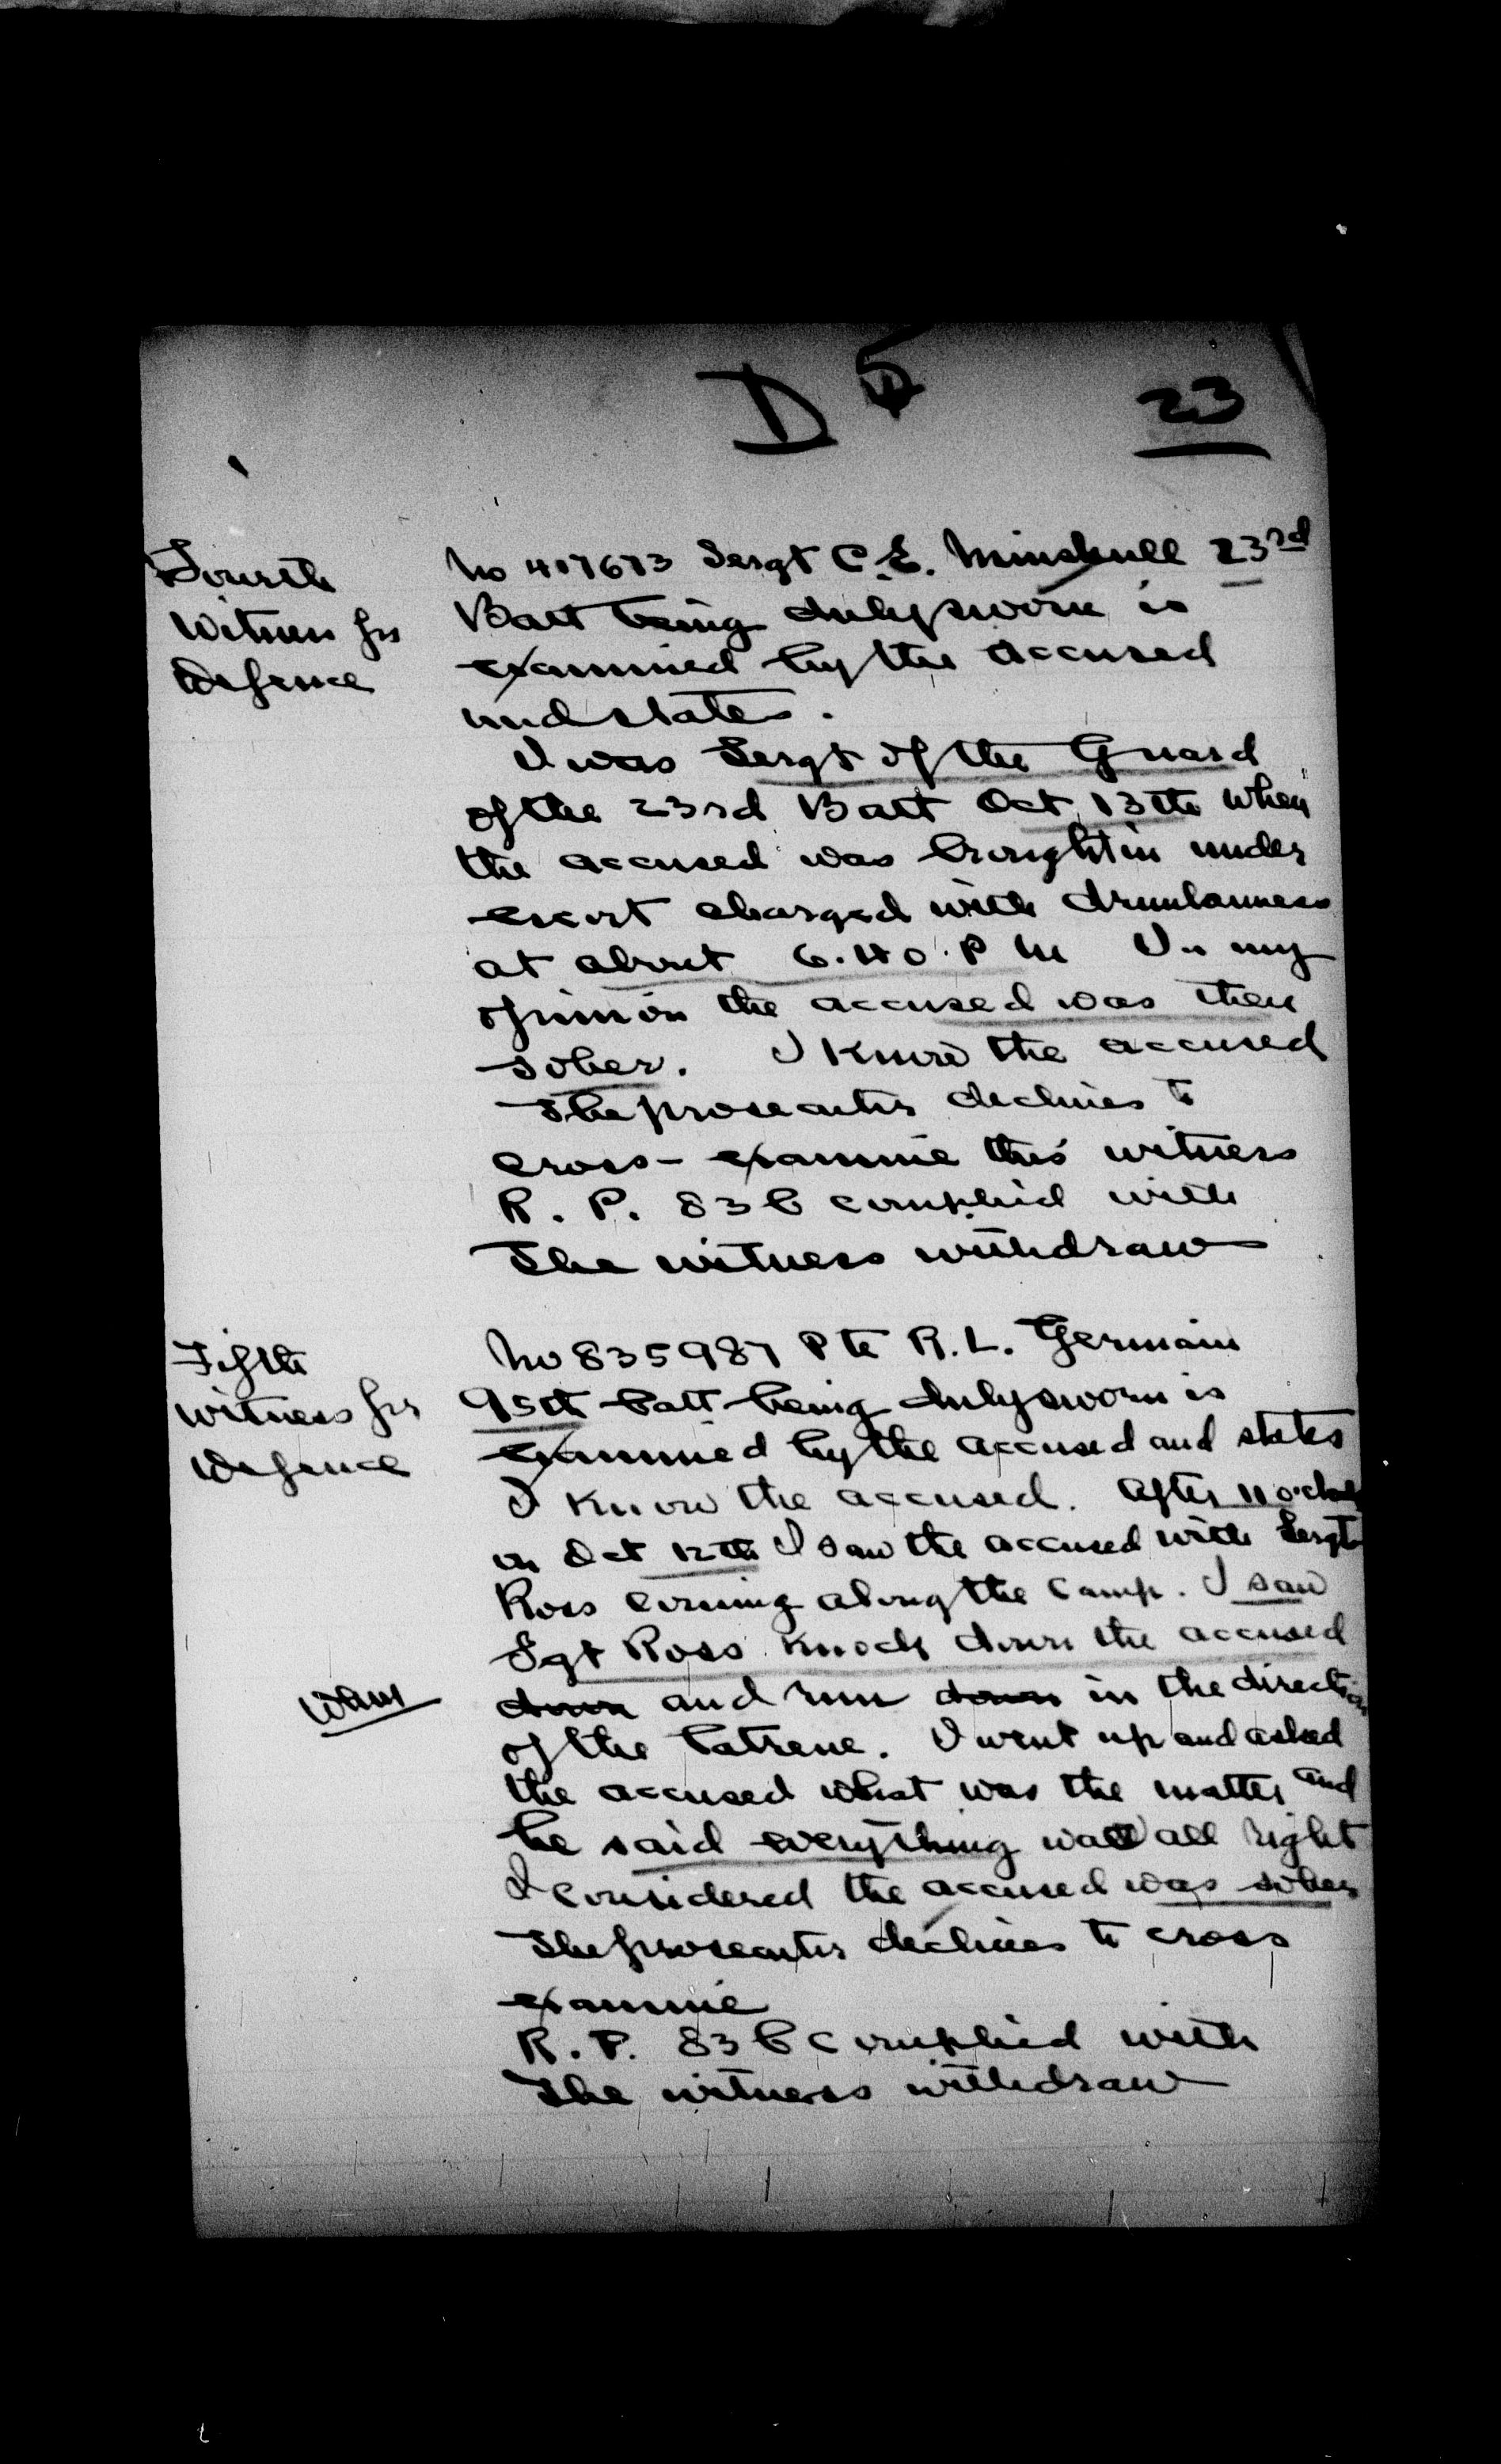 D 5
23
Fourth
Witness for
Defence
No 417673 Sergt C.E. Minshull 23rd
Batt being duly sworn is
examined by the accused
and states.
I was Sergt of the Guard
of the 23rd Batt Oct 13th when
the accused was brought in under
escort charged with drunkenness
at about 6.40 P M In my
opinion the accused was then
sober. I know the accused
The prosecutor declines to
cross-examine this witness
R. P. 83 B complied with
The witness withdraw
Fifth
witness for
Defence
No 835987 Pte R.L. Germain
95th Batt being duly sworn is
examined by the accused and states
I know the accused. After 11 o'clock
on Oct 12th I saw the accused with Sergt
Ross coming along the Camp. I saw
Sgt Ross knock down the accused
down and run down in the direction
of the latrene. I went up and asked
the accused what was the matter and
he said everything was all right
I considered the accused was sober
The prosecutor declines to cross
examine
R. P. 83 B complied with
The witness withdraw